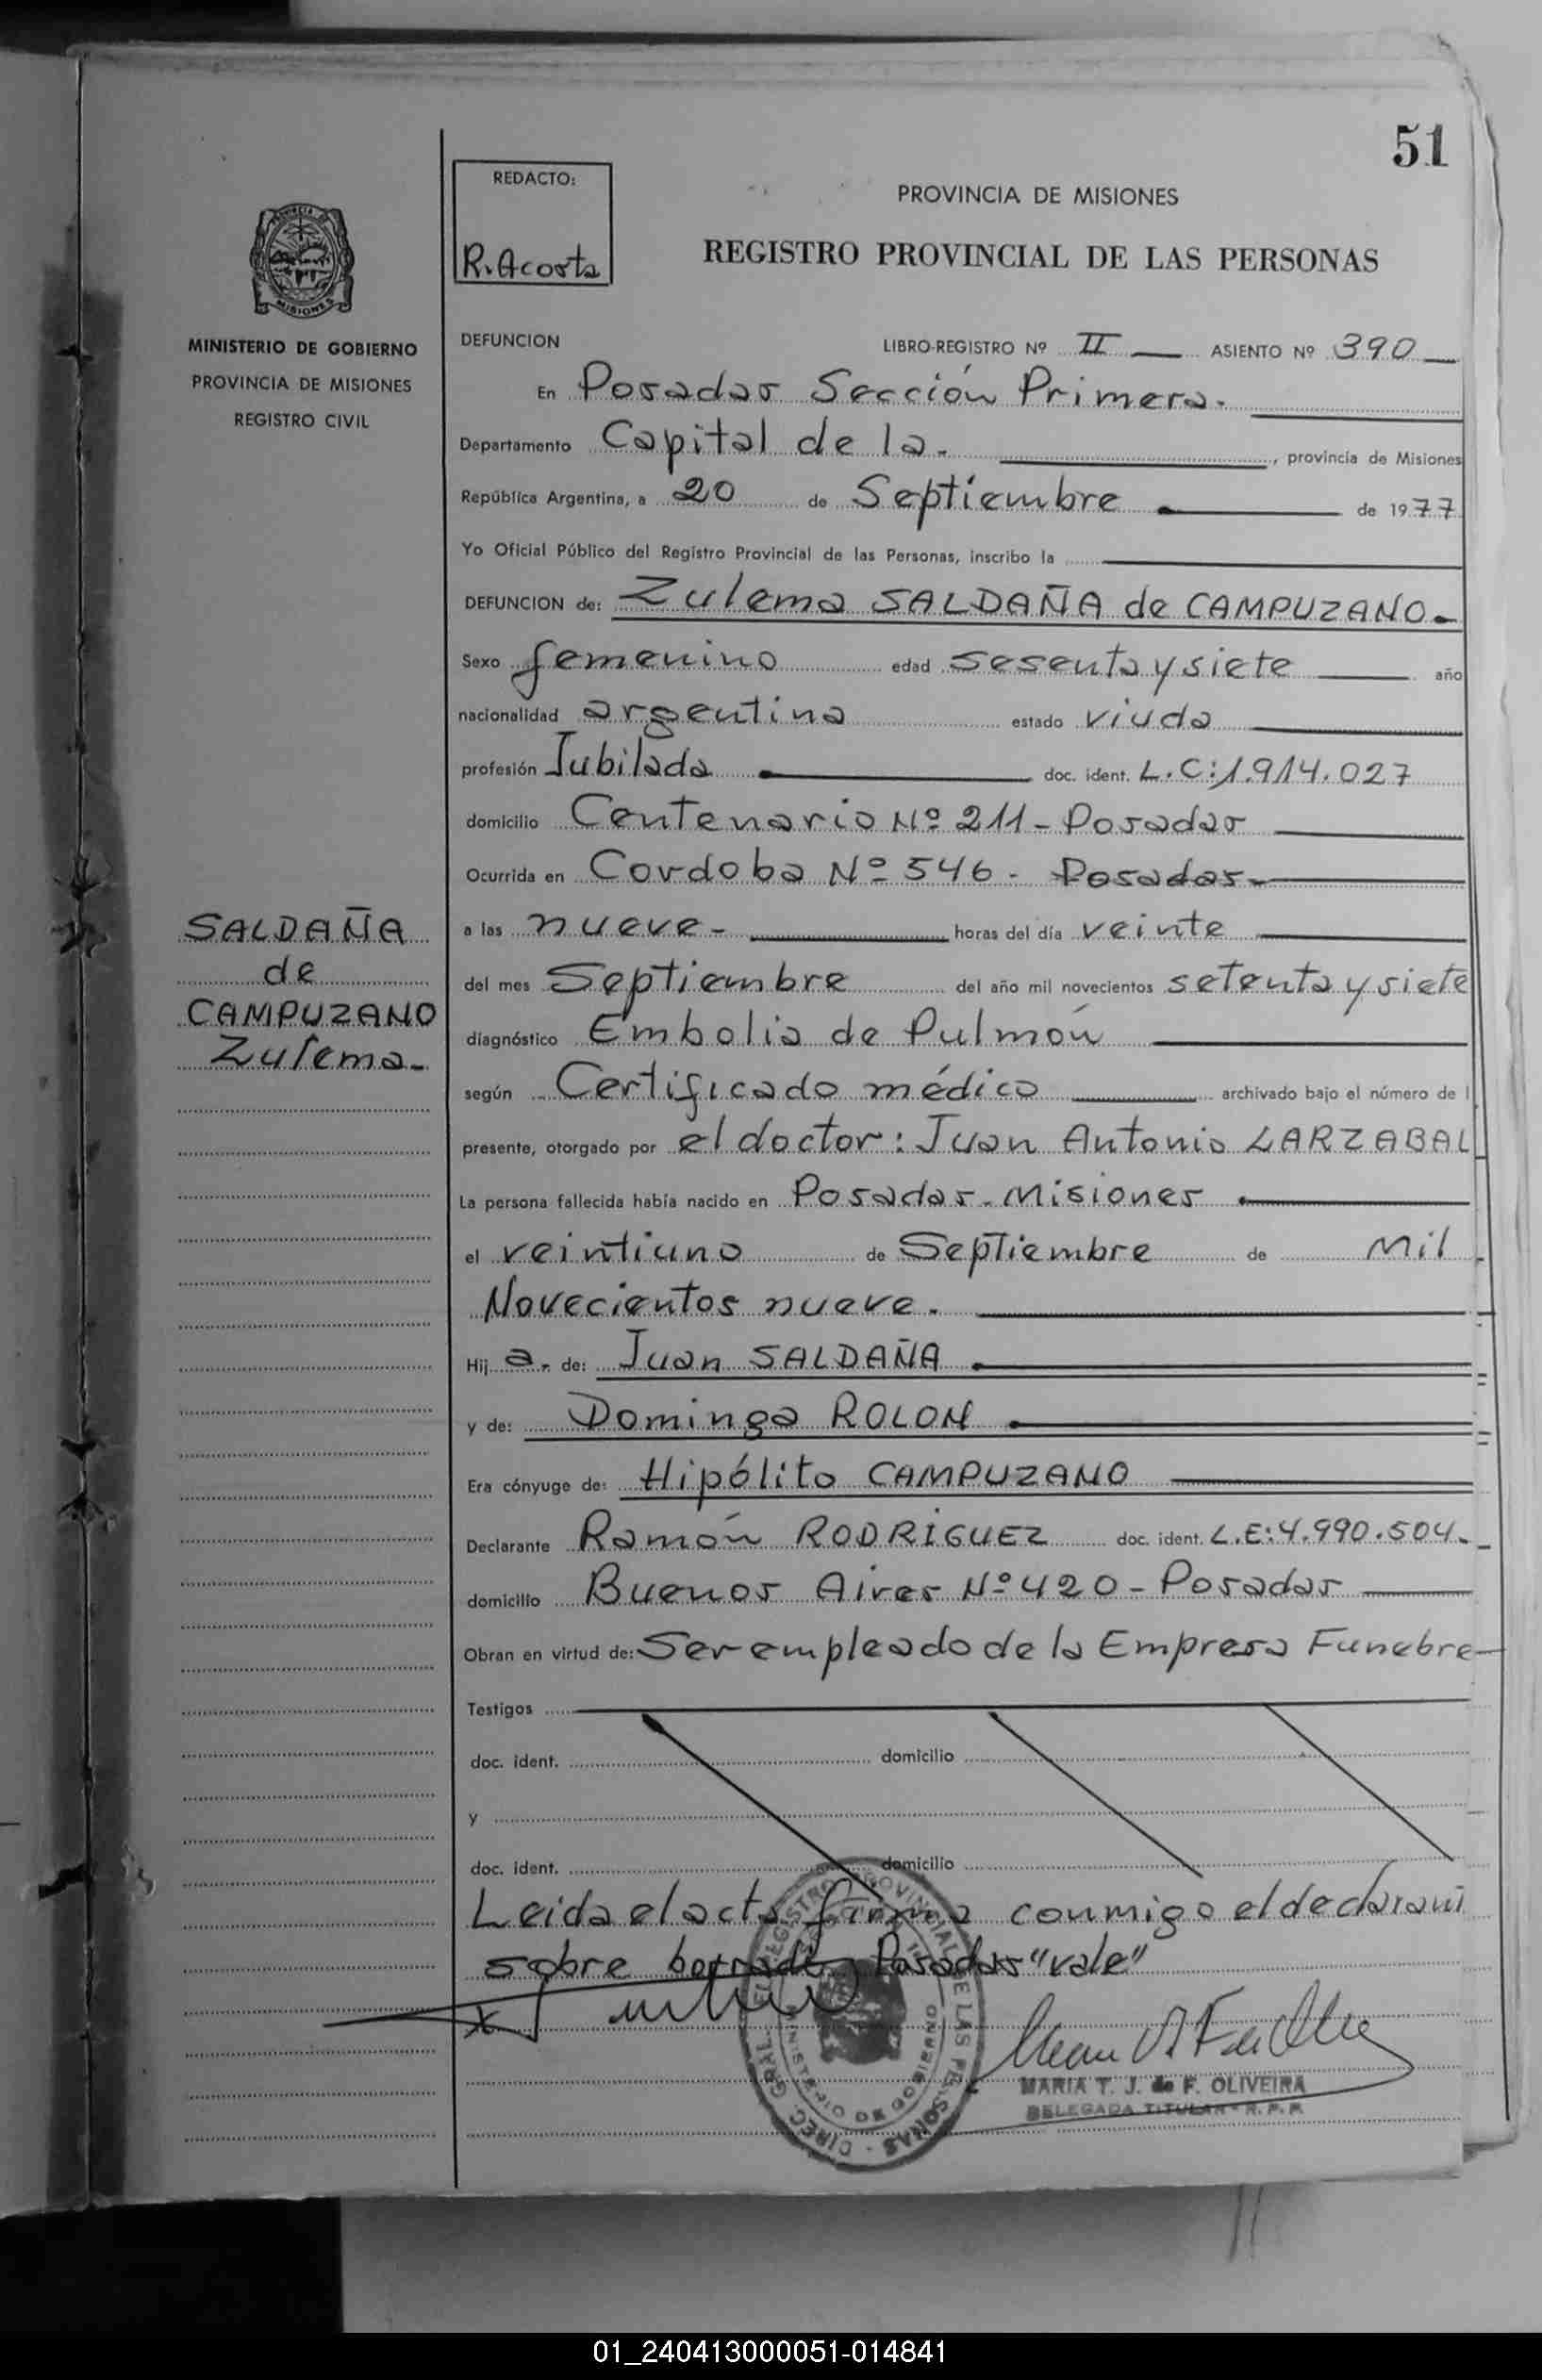 51
REDACTO:
R. Acosta
PROVINCIA DE MISIONES
REGISTRO PROVINCIAL DE LAS PERSONAS
PROVINCIA DE
MISIONES
MINISTERIO DE GOBIERNO
PROVINCIA DE MISIONES
REGISTRO CIVIL
DEFUNCION LIBRO-REGISTRO Nº II ASIENTO Nº 390
En Posadas Sección Primera.
Departamento Capital de la. , provincia de Misiones
República Argentina, a 20 de Septiembre de 1977
Yo Oficial Público del Registro Provincial de las Personas, inscribo la
DEFUNCION de: Zulema SALDAÑA de CAMPUZANO.
Sexo femenino edad sesenta y siete año
nacionalidad argentina estado viuda
profesión Jubilada doc. ident. L.C:1.914.027
domicilio Centenario Nº 211 - Posadas
Ocurrida en Cordoba Nº 546 - Posadas
a las nueve - horas del día veinte
del mes Septiembre del año mil novecientos setenta y siete
diagnóstico Embolia de Pulmón
según Certificado médico archivado bajo el número de l
presente, otorgado por el doctor: Juan Antonio LARZABAL
La persona fallecida había nacido en Posadas - Misiones
el veintiuno de Septiembre de Mil
Novecientos nueve.
Hij a. de: Juan SALDAÑA
y de: Dominga ROLON
Era cónyuge de: Hipólito CAMPUZANO
Declarante Ramón RODRIGUEZ doc. ident. L.E:4.990.504.
domicilio Buenos Aires Nº 420 - Posadas
Obran en virtud de: Ser empleado de la Empresa Funebre
Testigos
doc. ident. domicilio
y
doc. ident. domicilio
Leida el acta firma conmigo el declarant
sobre borrado Posadas "vale"
SALDAÑA
de
CAMPUZANO
Zulema.
MARIA T. J. de F. OLIVEIRA
DELEGADA TITULAR - R. P. P.
01_240413000051-014841